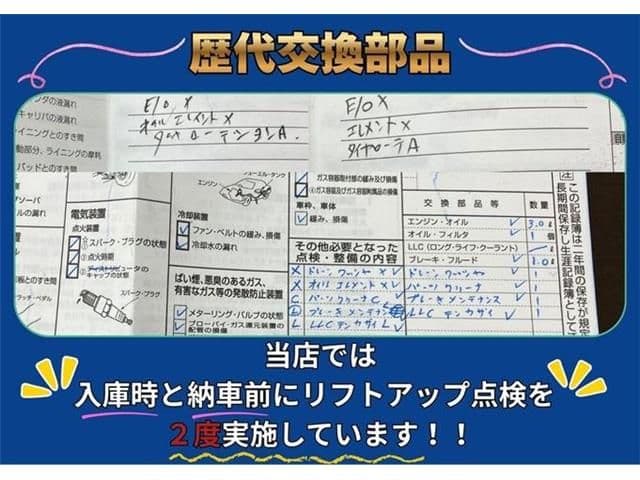 歴代交換部品
ンダの液漏れ
キャリパの液漏れ
イニングとのすき間
動部分、ライニングの摩耗
パッドとのすき間
E/O X
オイルエレメント X
タイヤローテーションA.
E/O X
エレメント X
タイヤローテA
エンジン
電気装置
点火装置
スパーク・プラグの状態
点火時期
ディストリビュータの
キャップの状態
スパーク・プラグ
冷却装置
ファン・ベルトの緩み、損傷
冷却水の漏れ
ばい煙、悪臭のあるガス、
有害なガス等の発散防止装置
メターリング・バルブの状態
ブローバイ・ガス還元装置の
配管の損傷
ガス容器取付部の緩み及び損傷
ガス容器及びガス容器附属品の損傷
車枠、車体
緩み、損傷
その他必要となった
点検・整備の内容
X ドレーンワッシャ X
X オイルエレメント X
C パーツクリーナ C
ブレーキメンテナンス
L LLCテンカザイ L
交換部品等 数量
エンジン・オイル 3.0 ℓ
オイル・フィルタ 個
LLC(ロング・ライフ・クーラント) ℓ
ブレーキ・フルード 1.0 ℓ
ドレーンワッシャ 1
パーツクリーナ 1
ブレーキメンテナンス 1
LLCテンカザイ 1
この記録簿は二年間の保存が規定
長期間保存し生涯記録簿として
当店では
入庫時と納車前にリフトアップ点検を
２度実施しています！！